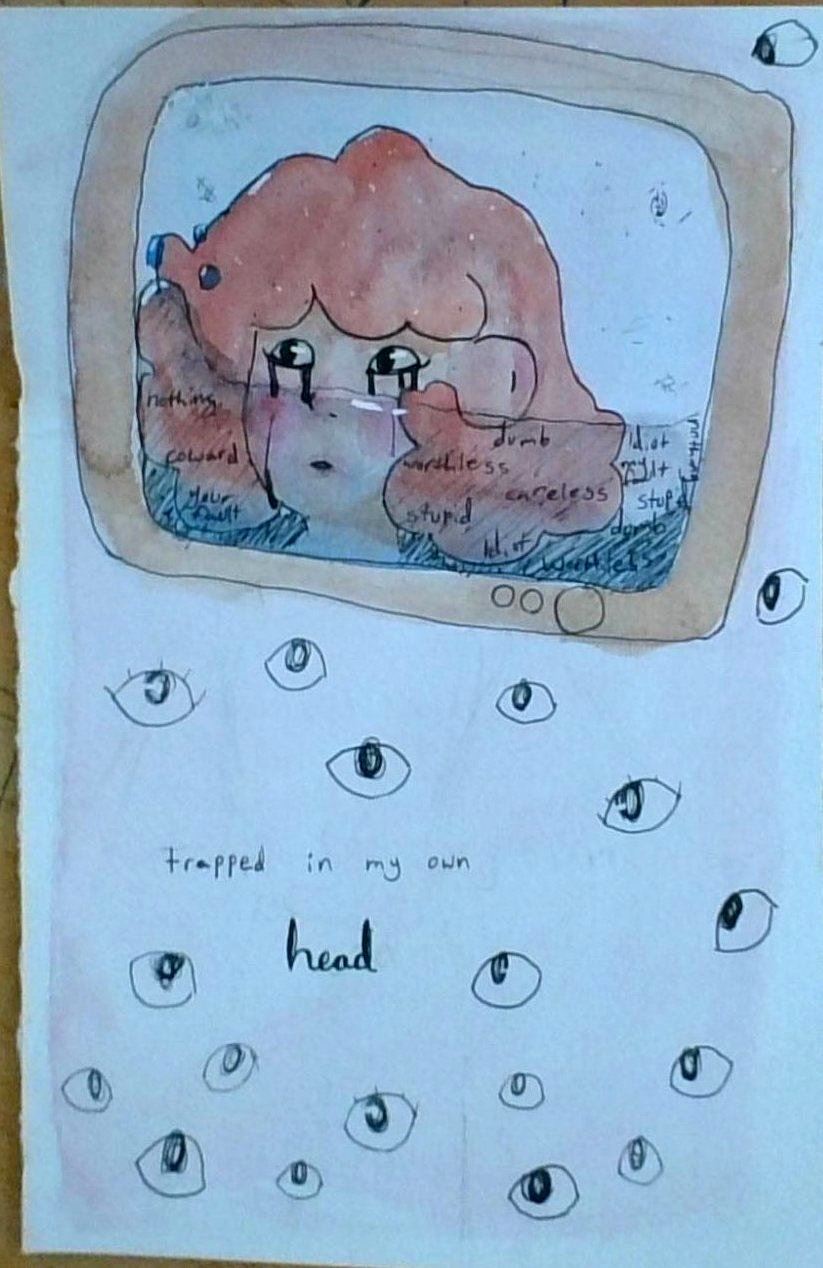 nothing
coward
your
fault
dumb
worthless
careless
stupid
Idiot
Idiot
stupid
dumb
worthless
trapped in my own
head